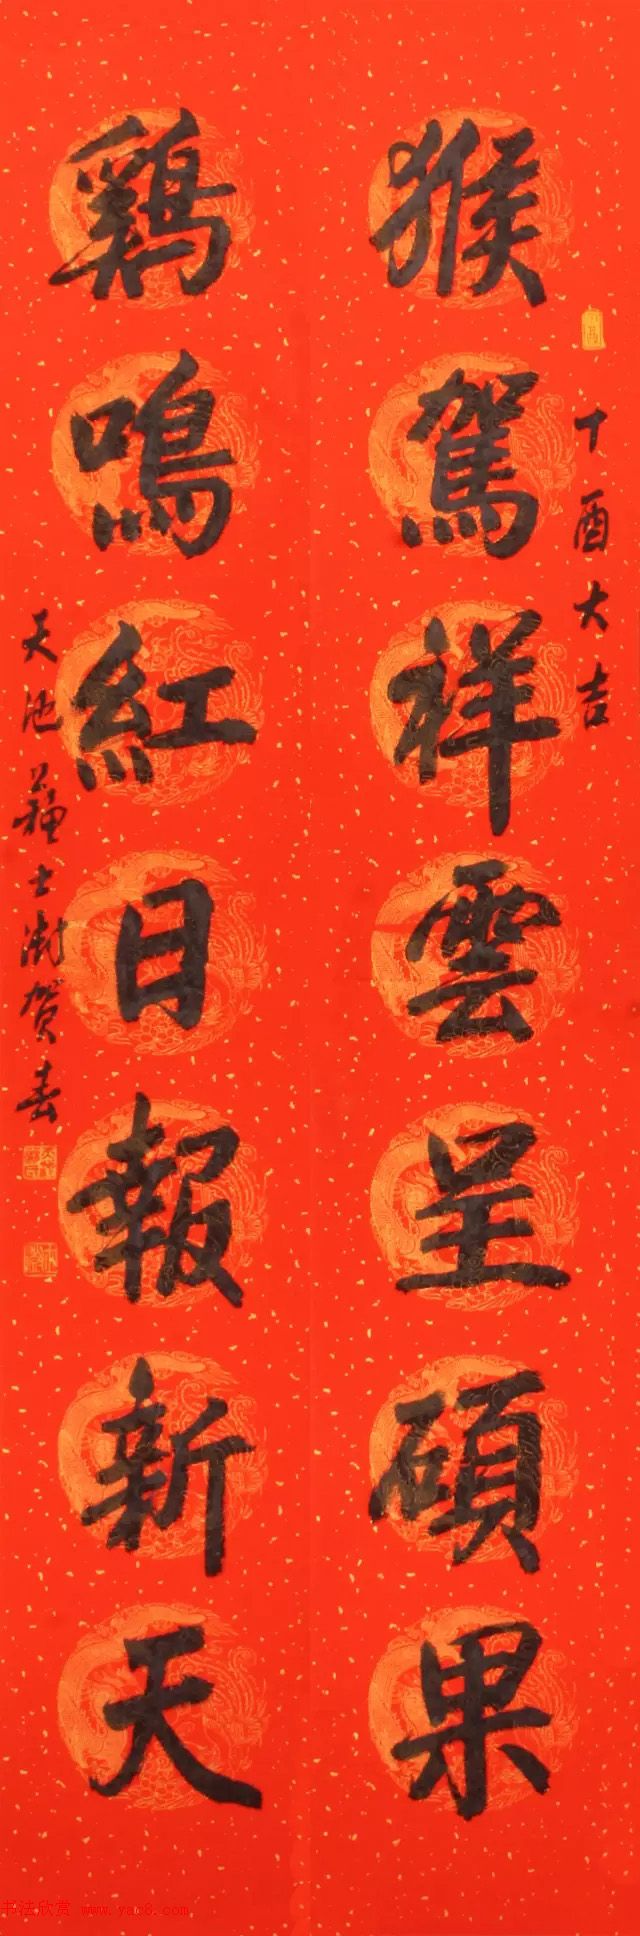 丁酉大吉
猴駕祥雲呈碩果
鷄鳴紅日報新天
天池蘇士澍贺春
书法欣赏 www.yac8.com